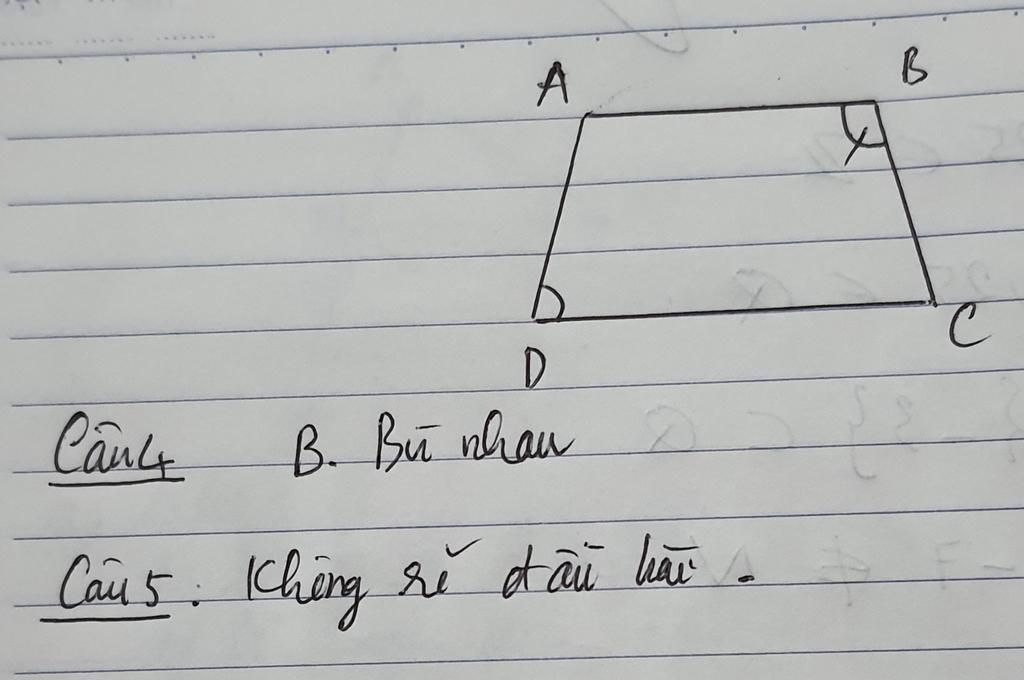 A B
x
D C
Câu 4 B. Bù nhau
Câu 5: Không rõ đầu bài.